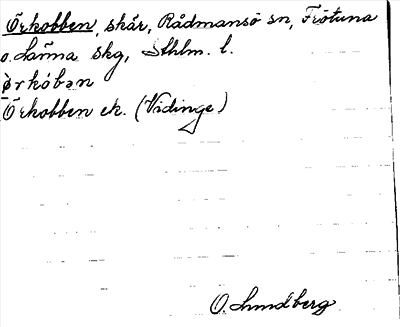 Örkobben, skär, Rådmansö sn, Frötuna
o. Länna skg, Sthlm. l.
ö̀rkóbən
Örkobben ek. (Vidinge)
O. Lundberg